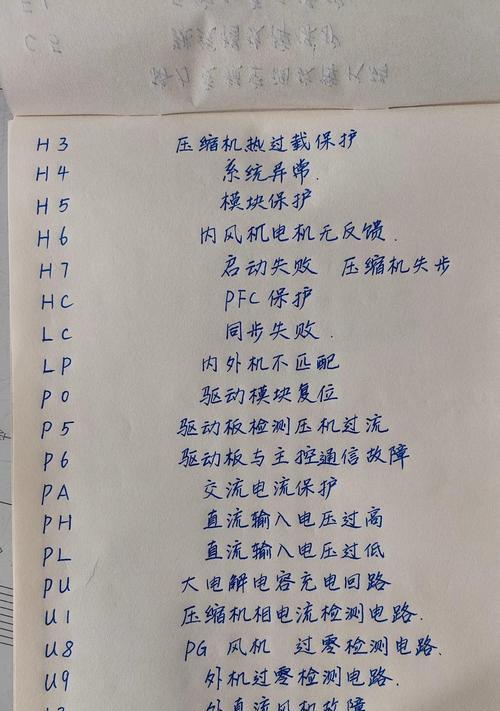 H3 压缩机热过载保护
H4 系统异常.
H5 模块保护
H6 内风机电机无反馈.
H7 启动失败 压缩机失步
HC PFC保护
LC 同步失败.
LP 内外机不匹配
P0 驱动模块复位
P5 驱动板检测压机过流
P6 驱动板与主控通信故障
PA 交流电流保护
PH 直流输入电压过高
PL 直流输入电压过低
PU 大电解电容充电回路
U1 压缩机相电流检测电路.
U8 PG风机 过零检测电路.
U9 外机过零检测电路.
外直流风机故障